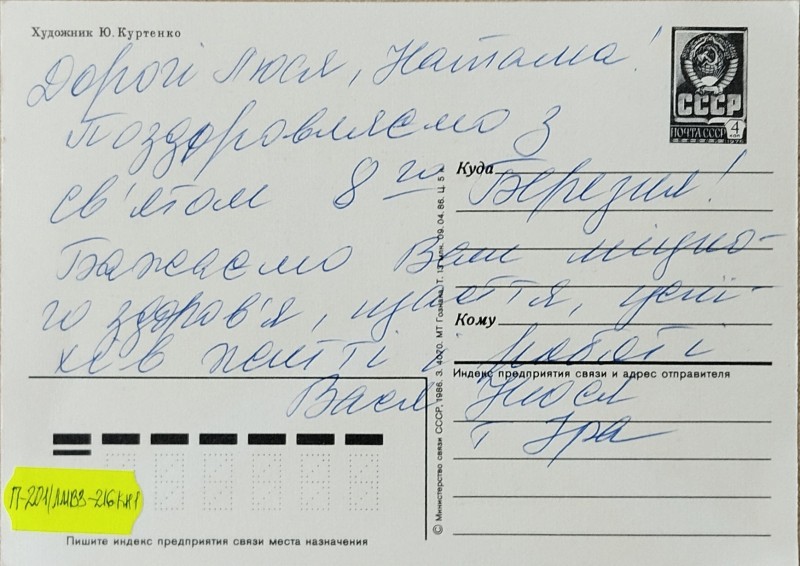 Художник Ю. Куртенко
Дорогі Люся, Наташа!
Поздоровляємо з
св'ятом 8 го Березня!
Бажаємо Вам міцно-
го здоров'я, щастя, успі-
хів в житті і роботі
Вася Люся
і Іра
СССР
ПОЧТА СССР 4 коп
Куда
Кому
Индекс предприятия связи и адрес отправителя
© Министерство связи СССР, 1986. З. 4070. МТ Гознака. Т. 13 млн. 09.04.86. Ц. 5 к.
П-201/ЛМВЗ-216КН1
Пишите индекс предприятия связи места назначения